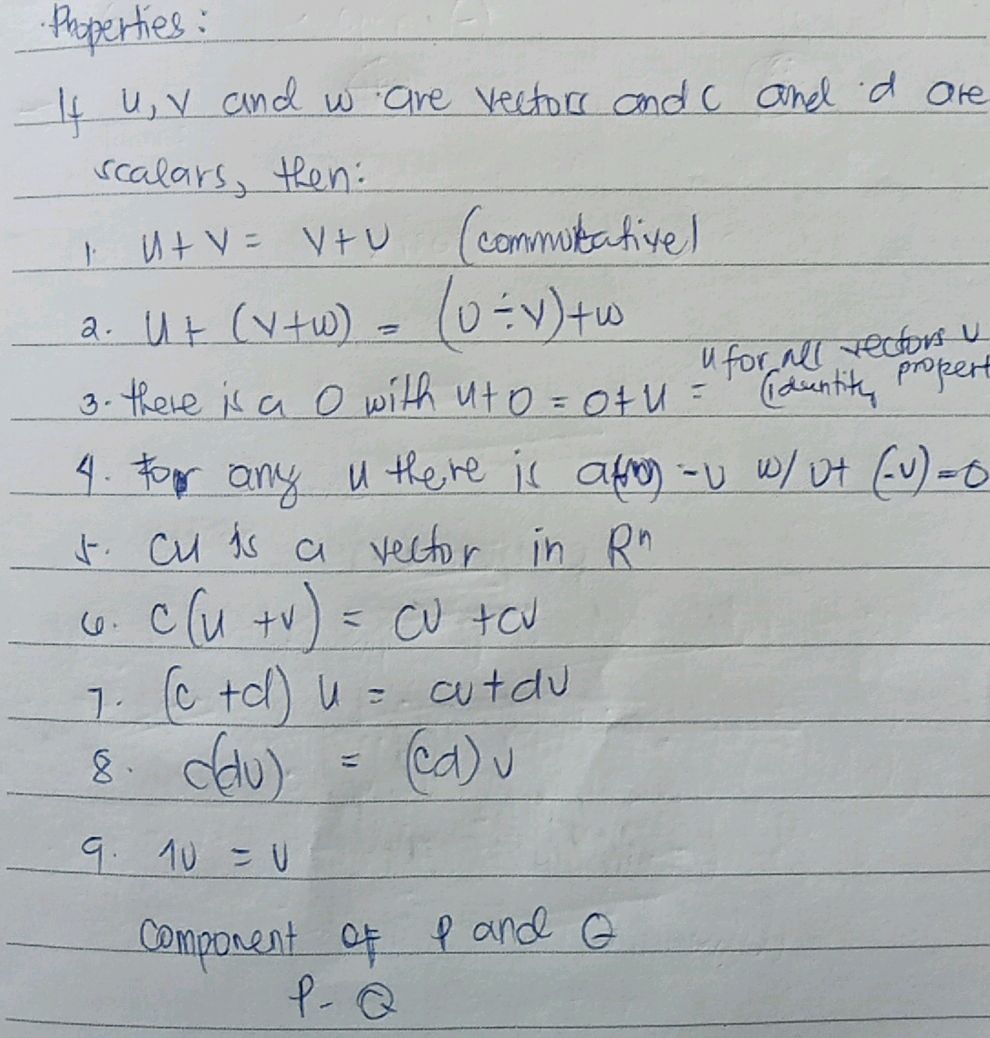 Properties:
If u, v and w are vectors and c and d are
scalars, then:
1. u + v = v + u (commutative)
2. u + (v+w) = (u ÷ v) + w
3. there is a 0 with u + 0 = 0 + u = u for all vectors u
(identity propert
4. For any u there is a -u w/ u + (-u) = 0
5. cu is a vector in Rⁿ
6. c(u + v) = cu + cv
7. (c + d) u = cu + du
8. c(du) = (cd) u
9. 1u = u
Component of P and Q
P - Q